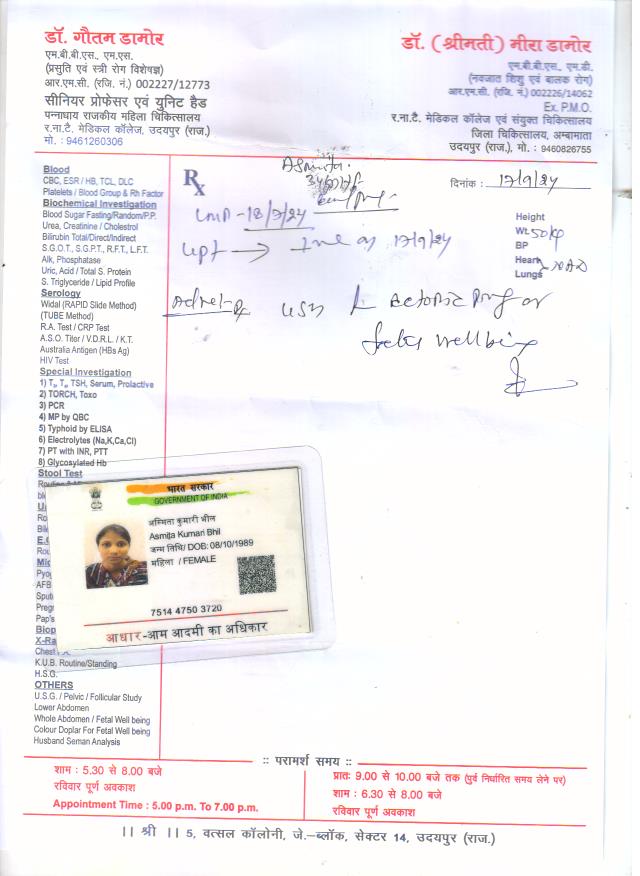 डॉ. गौतम डामोर
एम.बी.बी.एस., एम.एस.
(प्रसुति एवं स्त्री रोग विशेषज्ञ)
आर.एम.सी. (रजि. नं.) 002227/12773
सीनियर प्रोफेसर एवं युनिट हैड
पन्नाधाय राजकीय महिला चिकित्सालय
र.ना.टै. मेडिकल कॉलेज, उदयपुर (राज.)
मो. : 9461260306
डॉ. (श्रीमती) मीरा डामोर
एम.बी.बी.एस., एम.डी.
(नवजात शिशु एवं बालक रोग)
आर.एम.सी. (रजि. नं.) 002226/14062
Ex. P.M.O.
र.ना.टै. मेडिकल कॉलेज एवं संयुक्त चिकित्सालय
जिला चिकित्सालय, अम्बामाता
उदयपुर (राज.), मो. : 9460826755
Blood
CBC, ESR / HB, TCL, DLC
Platelets / Blood Group & Rh Factor
Biochemical Investigation
Blood Sugar Fasting/Random/P.P.
Urea, Creatinine / Cholestrol
Bilirubin Total/Direct/Indirect
S.G.O.T., S.G.P.T., R.F.T., L.F.T.
Alk, Phosphatase
Uric, Acid / Total S. Protein
S. Triglyceride / Lipid Profile
Serology
Widal (RAPID Slide Method)
(TUBE Method)
R.A. Test / CRP Test
A.S.O. Titer / V.D.R.L. / K.T.
Australia Antigen (HBs Ag)
HIV Test
Special Investigation
1) T3, T4, TSH, Serum, Prolactive
2) TORCH, Toxo
3) PCR
4) MP by QBC
5) Typhoid by ELISA
6) Electrolytes (Na,K,Ca,Cl)
7) PT with INR, PTT
8) Glycosylated Hb
Stool Test
K.U.B. Routine/Standing
H.S.G.
OTHERS
U.S.G. / Pelvic / Follicular Study
Lower Abdomen
Whole Abdomen / Fetal Well being
Colour Doplar For Fetal Well being
Husband Seman Analysis
Rx
Asmita
दिनांक : 17/9/24
LMP - 18/7/24
UPT → +ve on 17/9/24
Height
Wt. 50 kg
BP
Heart
Lungs NAD
Adv
USG
fetus wellbeing
भारत सरकार
GOVERNMENT OF INDIA
अस्मिता कुमारी भील
Asmita Kumari Bhil
जन्म तिथि/ DOB: 08/10/1989
महिला / FEMALE
7514 4750 3720
आधार-आम आदमी का अधिकार
:: परामर्श समय ::
शाम : 5.30 से 8.00 बजे
रविवार पूर्ण अवकाश
Appointment Time : 5.00 p.m. To 7.00 p.m.
प्रातः 9.00 से 10.00 बजे तक (पुर्व निर्धारित समय लेने पर)
शाम : 6.30 से 8.00 बजे
रविवार पूर्ण अवकाश
।। श्री ।। 5, वत्सल कॉलोनी, जे.-ब्लॉक, सेक्टर 14, उदयपुर (राज.)